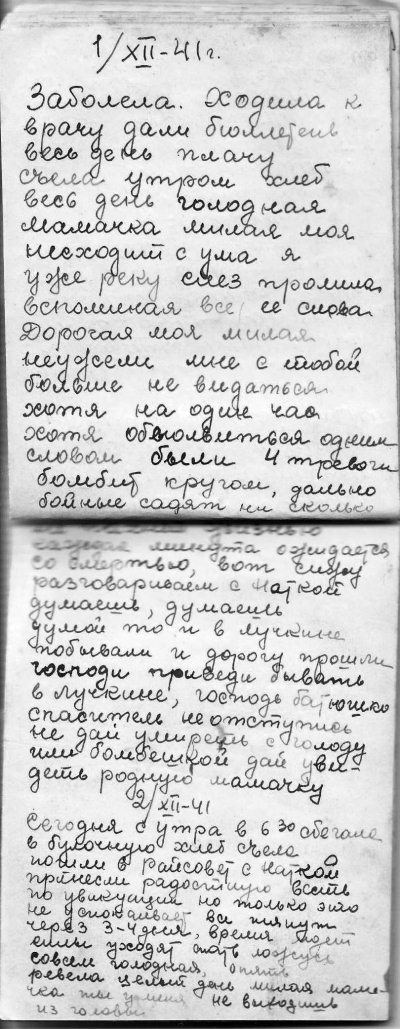 1/XII-41г.
Заболела. Ходила к
врачу дали бюллетень
весь день плачу
съела утром хлеб
весь день голодная
мамачка милая моя
несходит с ума я
уже реку слез пролила
вспоминая все ее слова
Дорогая моя милая
неужели мне с тобой
больше не видаться
хотя на один час
хотя обмолвиться одним
словом были 4 тревоги
бомбит кругом, дально
бойные садят ни сколько
жизнью
каждая минута ожидается
со смертью, вот сижу
разговариваем с Наткой
думаешь, думаешь
думой то и в Лучкине
побывали и дорогу прошли
господи приведи бывать
в Лучкине, господь батюшко
спаситель не отступись
не дай умереть с голоду
или бомбешкой дай уви-
деть родную мамачку
2/XII-41
Сегодня с утра в 6 30 сбегала
в булочную хлеб съела
пошли в Райсовет с Наткой
принесли радостную весть
по увикуации но только это
не успокаивает все тянут
через 3-4 дня, время идет
силы уходят спать ложусь
совсем голодная, опять
ревела целый день милая мама-
чка ты у меня не выходишь
из головы